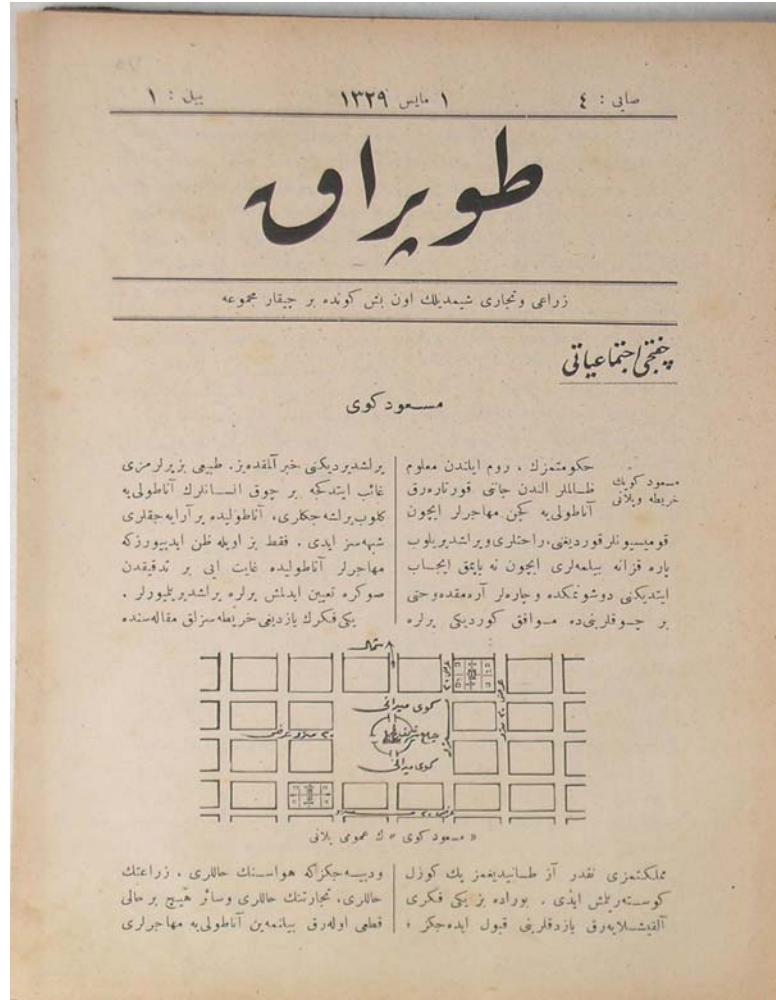 صایی : ٤
١ مایس ١٣٢٩
ییل : ١
طوپراق
زراعی وتجاری شیمدیلك اون بش كونده بر چیقار مجموعه
چفتجی اجتماعیاتی
مسعود كوی
مسعود كوینك
خریطه وپلانی
حكومتمزك ، روم ایلندن معلوم
ظالملر الندن جانی قورتاره‌رق
آناطولی‌یه كچن مهاجرلر ایچون
قومیسیونلر قوردیغنی، راحتلری ویراشدیریلوب
پاره قزانه بیلمه‌لری ایچون نه یاپمق ایجاب
ایتدیكنی دوشونمكده وچاره‌لر آره‌مقده وحتی
بر چوقلرینی‌ده موافق كوردیكی یرلره
یراشدیردیكنی خبر آلمقده‌یز. طبیعی بز یرلرمزی
غائب ایتدكجه بر چوق انسانلرك آناطولی‌یه
كلوب یراشه‌جكلری، آناطولیده یر آرایه‌جقلری
شبهه‌سز ایدی . فقط بز اویله ظن ایدییورزكه
مهاجرلر آناطولیده غایت ایی بر تدقیقدن
صوكره تعیین ایدلمش یرلره یراشدیریلیورلر .
یكی فكرك یازدیغی خریطه‌سزلق مقاله‌سنده
شمال
كوی میدانی
جامع شریف
كوی میدانی
« مسعود كوی » ك عمومی پلانی
مملكتمزی نقدر آز طانیدیغمز پك كوزل
كوسته‌ریلمش ایدی . بوراده بز یكی فكری
آلقیشلایه‌رق یازدقلرینی قبول ایده‌جكز ،
ودییه‌جكزكه هواسنك حاللری ، زراعتك
حاللری، تجارتنك حاللری وسائر هیچ بر حالی
قطعی اوله‌رق بیلنمه‌ین آناطولی‌یه مهاجرلری